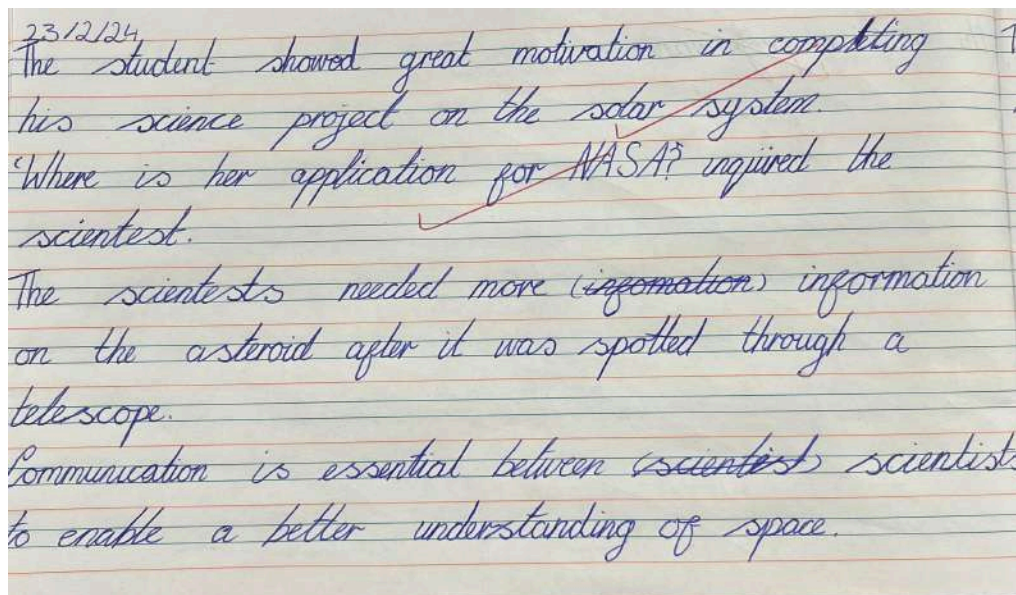 23/2/24
The student showed great motivation in completing
his science project on the solar system.
'Where is her application for NASA?' inquired the
scientest.
The scientests needed more (infomation) information
on the asteroid after it was spotted through a
telescope.
Communication is essential between (scientist) scientists
to enable a better understanding of space.